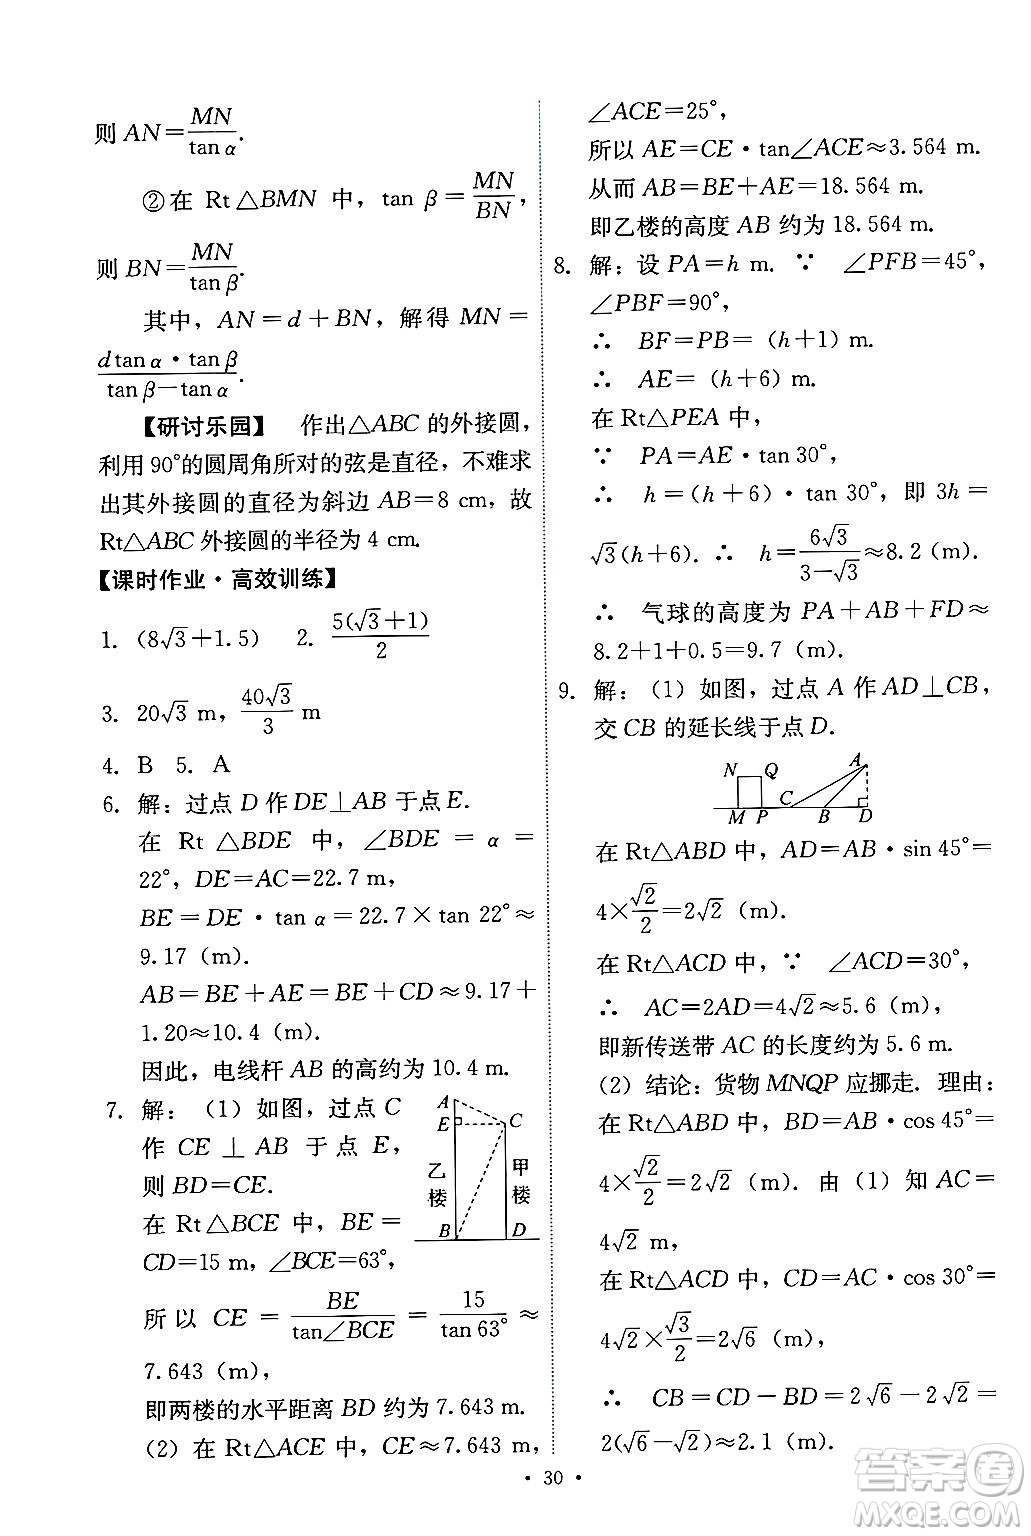 则 AN=MN/tan α.
②在 Rt△BMN 中，tan β=MN/BN，
则 BN=MN/tan β.
其中，AN=d+BN，解得 MN=
dtan α·tan β/tan β−tan α.
【研讨乐园】 作出△ABC 的外接圆，
利用 90°的圆周角所对的弦是直径，不难求
出其外接圆的直径为斜边 AB=8 cm，故
Rt△ABC 外接圆的半径为 4 cm.
【课时作业·高效训练】
1. (8√3+1.5) 2. 5(√3+1)/2
3. 20√3 m，40√3/3 m
4. B 5. A
6. 解：过点 D 作 DE⊥AB 于点 E.
在 Rt △BDE 中，∠BDE = α =
22°，DE=AC=22.7 m，
BE=DE·tan α=22.7×tan 22°≈
9.17 (m).
AB=BE+AE=BE+CD≈9.17+
1.20≈10.4 (m).
因此，电线杆 AB 的高约为 10.4 m.
7. 解：(1) 如图，过点 C
作 CE⊥AB 于点 E，
则 BD=CE.
在 Rt△BCE 中，BE=
CD=15 m，∠BCE=63°，
A
E
C
乙楼
甲楼
B
D
所以 CE = BE/tan∠BCE = 15/tan 63° ≈
7.643 (m)，
即两楼的水平距离 BD 约为 7.643 m.
(2) 在 Rt△ACE 中，CE≈7.643 m，
∠ACE=25°，
所以 AE=CE·tan∠ACE≈3.564 m.
从而 AB=BE+AE=18.564 m.
即乙楼的高度 AB 约为 18.564 m.
8. 解：设 PA=h m. ∵ ∠PFB=45°，
∠PBF=90°，
∴ BF=PB=(h+1) m.
∴ AE=(h+6) m.
在 Rt△PEA 中，
∵ PA=AE·tan 30°，
∴ h=(h+6)·tan 30°，即 3h=
√3(h+6). ∴ h=6√3/3−√3≈8.2 (m).
∴ 气球的高度为 PA+AB+FD≈
8.2+1+0.5=9.7 (m).
9. 解：(1) 如图，过点 A 作 AD⊥CB，
交 CB 的延长线于点 D.
N Q A
C
M P B D
在 Rt△ABD 中，AD=AB·sin 45°=
4×√2/2=2√2 (m).
在 Rt△ACD 中，∵ ∠ACD=30°，
∴ AC=2AD=4√2≈5.6 (m).
即新传送带 AC 的长度约为 5.6 m.
(2) 结论：货物 MNQP 应挪走. 理由：
在 Rt△ABD 中，BD=AB·cos 45°=
4×√2/2=2√2 (m). 由 (1) 知 AC=
4√2 m，
在 Rt△ACD 中，CD=AC·cos 30°=
4√2×√3/2=2√6 (m)，
∴ CB=CD−BD=2√6−2√2=
2(√6−√2)≈2.1 (m).
·30·
答案圈
MXQE.COM